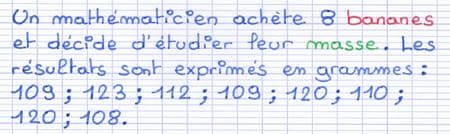 Un mathématicien achète 8 bananes
et décide d'étudier leur masse. Les
résultats sont exprimés en grammes :
109 ; 123 ; 112 ; 109 ; 120 ; 110 ;
120 ; 108.